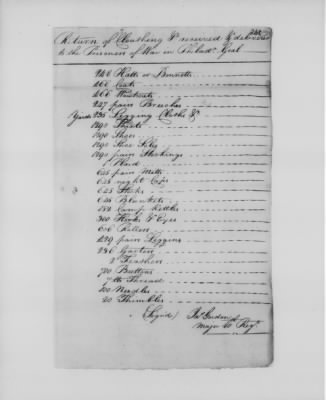 Return of Cloathing &c received & delivered
to the Prisoners of War in Philada. Goal
466 Hatts or Bonnetts
466 Coats
466 Waistcoats
247 pair Breeches
Yards 295 Legging Cloths &c
1290 Shirts
1290 Shoes
1290 Shoe
1290 pair Stockings
625 pair Mitts
625 night Caps
625 Stocks
Blankets
Camp Kettles
300 Hooks & Eyes
Pillows
pair Leggins
Garters
2 Feathers
720 Buttons
Thread
200 Needles
20 Thimbles
(Signed) Jas Gordon
Major 80 Regt.